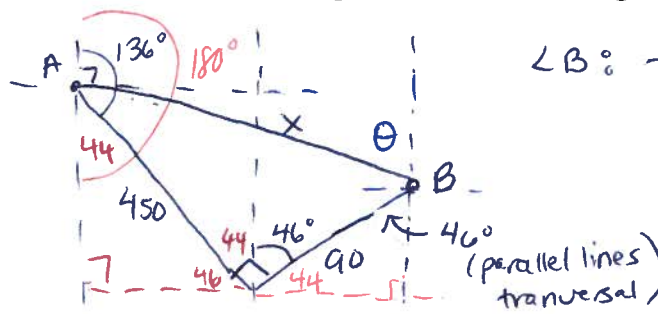 136°
180°
∠B: -
A
7
44
x
θ
B
450
44
46°
46°
90
(parallel lines
tranversal)
7
46
44